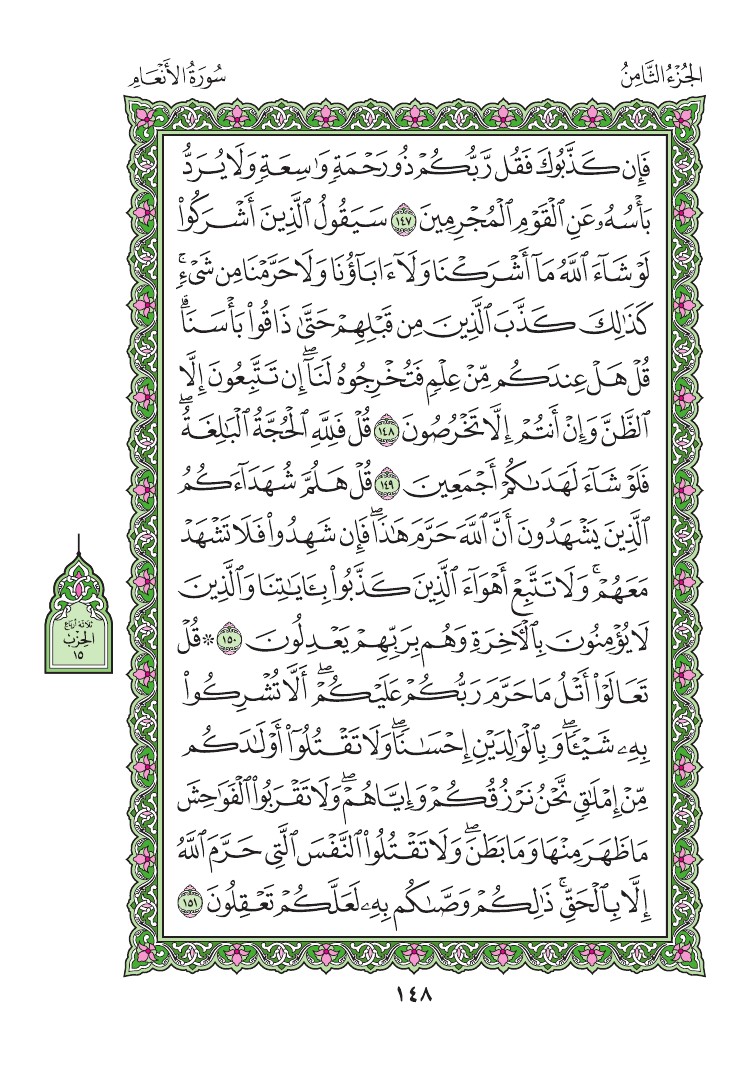 الجُزْءُ الثَّامِنُ
سُورَةُ الأَنْعَامِ
فَإِن كَذَّبُوكَ فَقُل رَّبُّكُمْ ذُو رَحْمَةٍ وَٰسِعَةٍ وَلَا يُرَدُّ
بَأْسُهُۥ عَنِ ٱلْقَوْمِ ٱلْمُجْرِمِينَ ١٤٧ سَيَقُولُ ٱلَّذِينَ أَشْرَكُوا۟
لَوْ شَآءَ ٱللَّهُ مَآ أَشْرَكْنَا وَلَآ ءَابَآؤُنَا وَلَا حَرَّمْنَا مِن شَىْءٍ ۚ
كَذَٰلِكَ كَذَّبَ ٱلَّذِينَ مِن قَبْلِهِمْ حَتَّىٰ ذَاقُوا۟ بَأْسَنَا ۗ
قُلْ هَلْ عِندَكُم مِّنْ عِلْمٍ فَتُخْرِجُوهُ لَنَآ ۖ إِن تَتَّبِعُونَ إِلَّا
ٱلظَّنَّ وَإِنْ أَنتُمْ إِلَّا تَخْرُصُونَ ١٤٨ قُلْ فَلِلَّهِ ٱلْحُجَّةُ ٱلْبَٰلِغَةُ ۖ
فَلَوْ شَآءَ لَهَدَىٰكُمْ أَجْمَعِينَ ١٤٩ قُلْ هَلُمَّ شُهَدَآءَكُمُ
ٱلَّذِينَ يَشْهَدُونَ أَنَّ ٱللَّهَ حَرَّمَ هَٰذَا ۖ فَإِن شَهِدُوا۟ فَلَا تَشْهَدْ
مَعَهُمْ ۚ وَلَا تَتَّبِعْ أَهْوَآءَ ٱلَّذِينَ كَذَّبُوا۟ بِـَٔايَٰتِنَا وَٱلَّذِينَ
لَا يُؤْمِنُونَ بِٱلْـَٔاخِرَةِ وَهُم بِرَبِّهِمْ يَعْدِلُونَ ١٥٠ ۞ قُلْ
تَعَالَوْا۟ أَتْلُ مَا حَرَّمَ رَبُّكُمْ عَلَيْكُمْ ۖ أَلَّا تُشْرِكُوا۟
بِهِۦ شَيْـًٔا ۖ وَبِٱلْوَٰلِدَيْنِ إِحْسَٰنًا ۖ وَلَا تَقْتُلُوٓا۟ أَوْلَٰدَكُم
مِّنْ إِمْلَٰقٍ ۖ نَّحْنُ نَرْزُقُكُمْ وَإِيَّاهُمْ ۖ وَلَا تَقْرَبُوا۟ ٱلْفَوَٰحِشَ
مَا ظَهَرَ مِنْهَا وَمَا بَطَنَ ۖ وَلَا تَقْتُلُوا۟ ٱلنَّفْسَ ٱلَّتِى حَرَّمَ ٱللَّهُ
إِلَّا بِٱلْحَقِّ ۚ ذَٰلِكُمْ وَصَّىٰكُم بِهِۦ لَعَلَّكُمْ تَعْقِلُونَ ١٥١
ثلاثة أرباع
الحِزْب
١٥
١٤٨